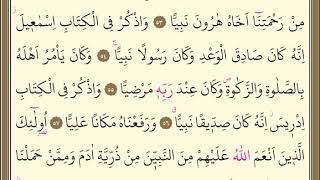 مِنْ رَحْمَتِنَٓا اَخَاهُ هٰرُونَ نَبِيًّا ﴿٥٣﴾ وَاذْكُرْ فِي الْكِتَابِ اِسْمٰع۪يلَۘ
اِنَّهُ كَانَ صَادِقَ الْوَعْدِ وَكَانَ رَسُولًا نَبِيًّاۚ ﴿٥٤﴾ وَكَانَ يَأْمُرُ اَهْلَهُ
بِالصَّلٰوةِ وَالزَّكٰوةِۖ وَكَانَ عِنْدَ رَبِّه۪ مَرْضِيًّا ﴿٥٥﴾ وَاذْكُرْ فِي الْكِتَابِ
اِدْر۪يسَۘ اِنَّهُ كَانَ صِدّ۪يقًا نَبِيًّاۗ ﴿٥٦﴾ وَرَفَعْنَاهُ مَكَانًا عَلِيًّا ﴿٥٧﴾ اُو۬لٰٓئِكَ
الَّذ۪ينَ اَنْعَمَ اللّٰهُ عَلَيْهِمْ مِنَ النَّبِيّ۪نَ مِنْ ذُرِّيَّةِ اٰدَمَ وَمِمَّنْ حَمَلْنَا